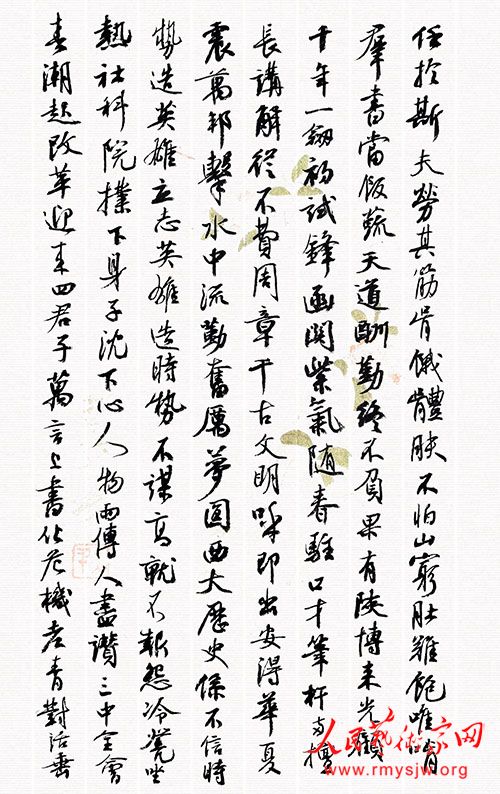 任於斯夫勞其筋骨餓體膚不怕山窮肚難飽唯
羣書當飯蔬天道酬勤終不負果有陝博來光顧
十年一劍初試鋒函関紫氣随春駐口才筆杆 擅
長講解從不費周章千古文明呼即出安得華夏
震萬邦擊水中流勤奮厲夢圆西大歷史係不信時
勢造英雄立志英雄造時势不謀高就不報怨冷凳坐
熱社科院撲下身子沈下心人物兩傳人盡讚三中全會
春潮起改革迎来四君子萬言上書化危機老青對話垂
人民藝術家网
www.rmysjw.org